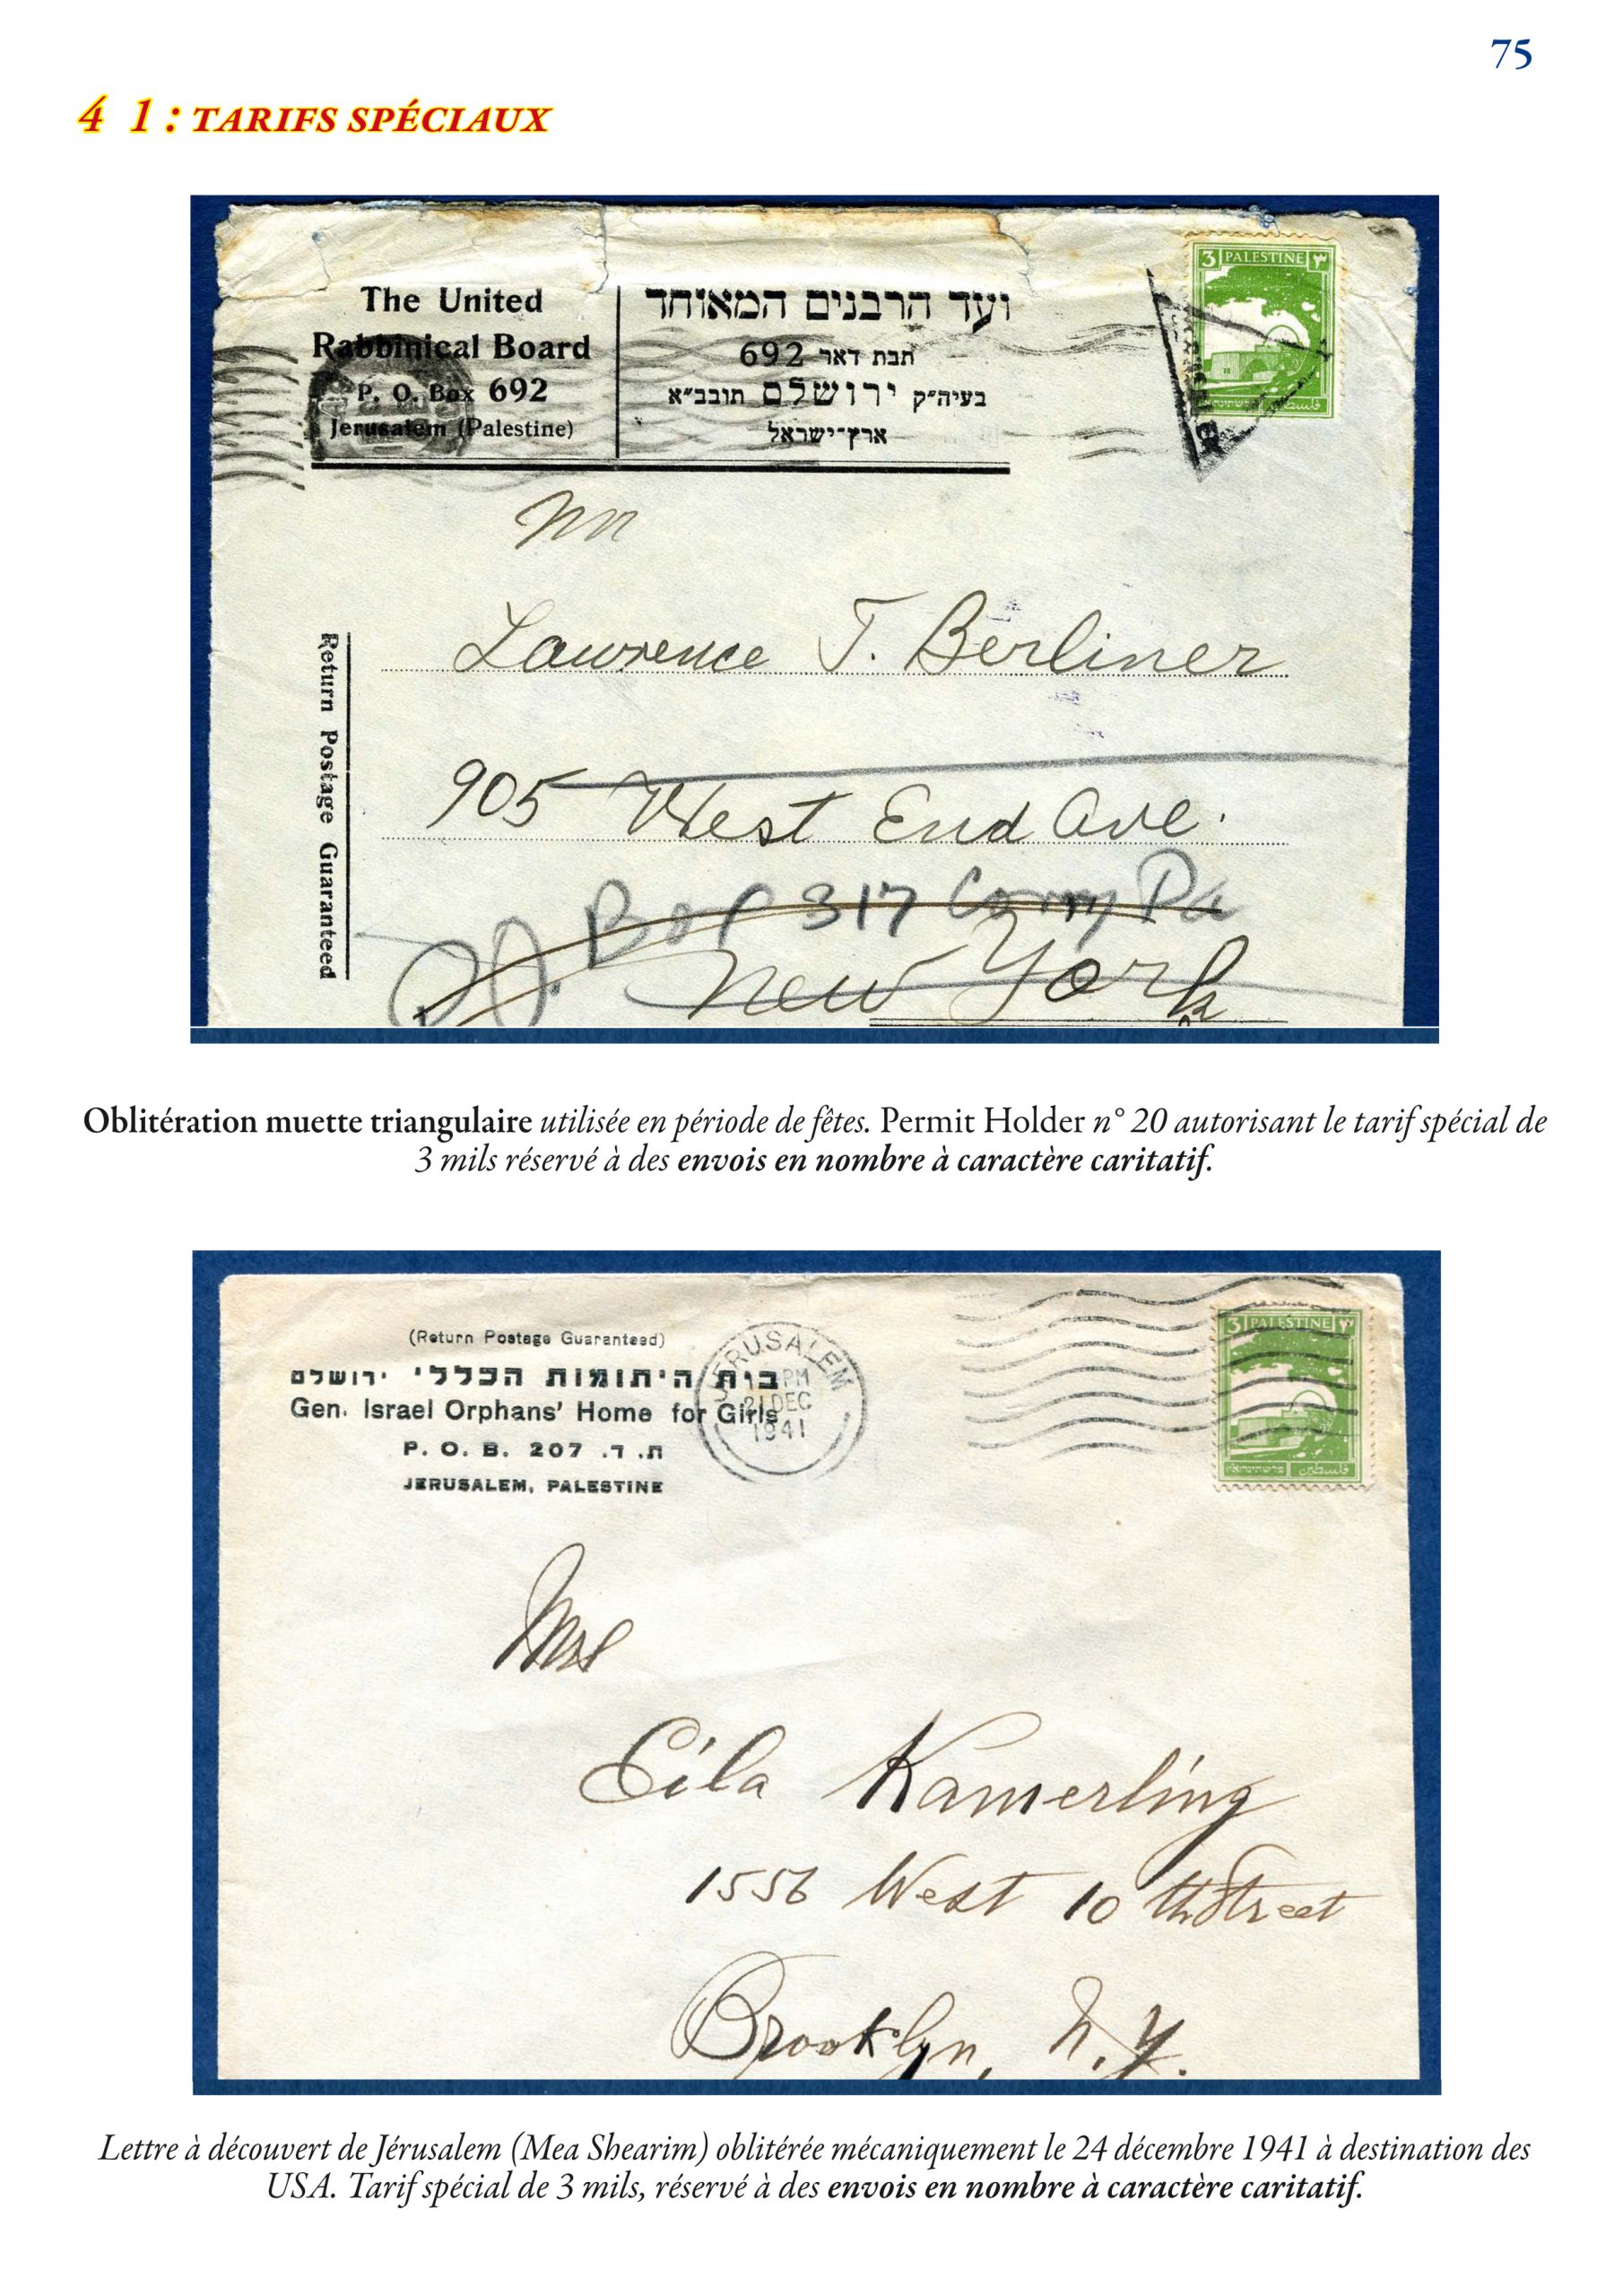 75
4 1 : TARIFS SPÉCIAUX
The United
Rabbinical Board
P. O. Box 692
Jerusalem (Palestine)
ועד הרבנים המאוחד
תבת דאר 692
בעיה״ק ירושלם תובב״א
ארץ־ישראל
3 PALESTINE ٣
Return Postage Guaranteed
Lawrence T. Berliner
905 West End Ave.
317 Corry Pa
New York
Oblitération muette triangulaire utilisée en période de fêtes. Permit Holder n° 20 autorisant le tarif spécial de
3 mils réservé à des envois en nombre à caractère caritatif.
(Return Postage Guaranteed)
בית היתומות הכללי ירושלם
Gen. Israel Orphans' Home for Girls
P. O. B. 207 ת. ד.
JERUSALEM, PALESTINE
JERUSALEM
PM
21 DEC
1941
3 PALESTINE ٣
Mrs
Cila Kamerling
1556 West 10 th Street
Brooklyn, N. Y.
Lettre à découvert de Jérusalem (Mea Shearim) oblitérée mécaniquement le 24 décembre 1941 à destination des
USA. Tarif spécial de 3 mils, réservé à des envois en nombre à caractère caritatif.